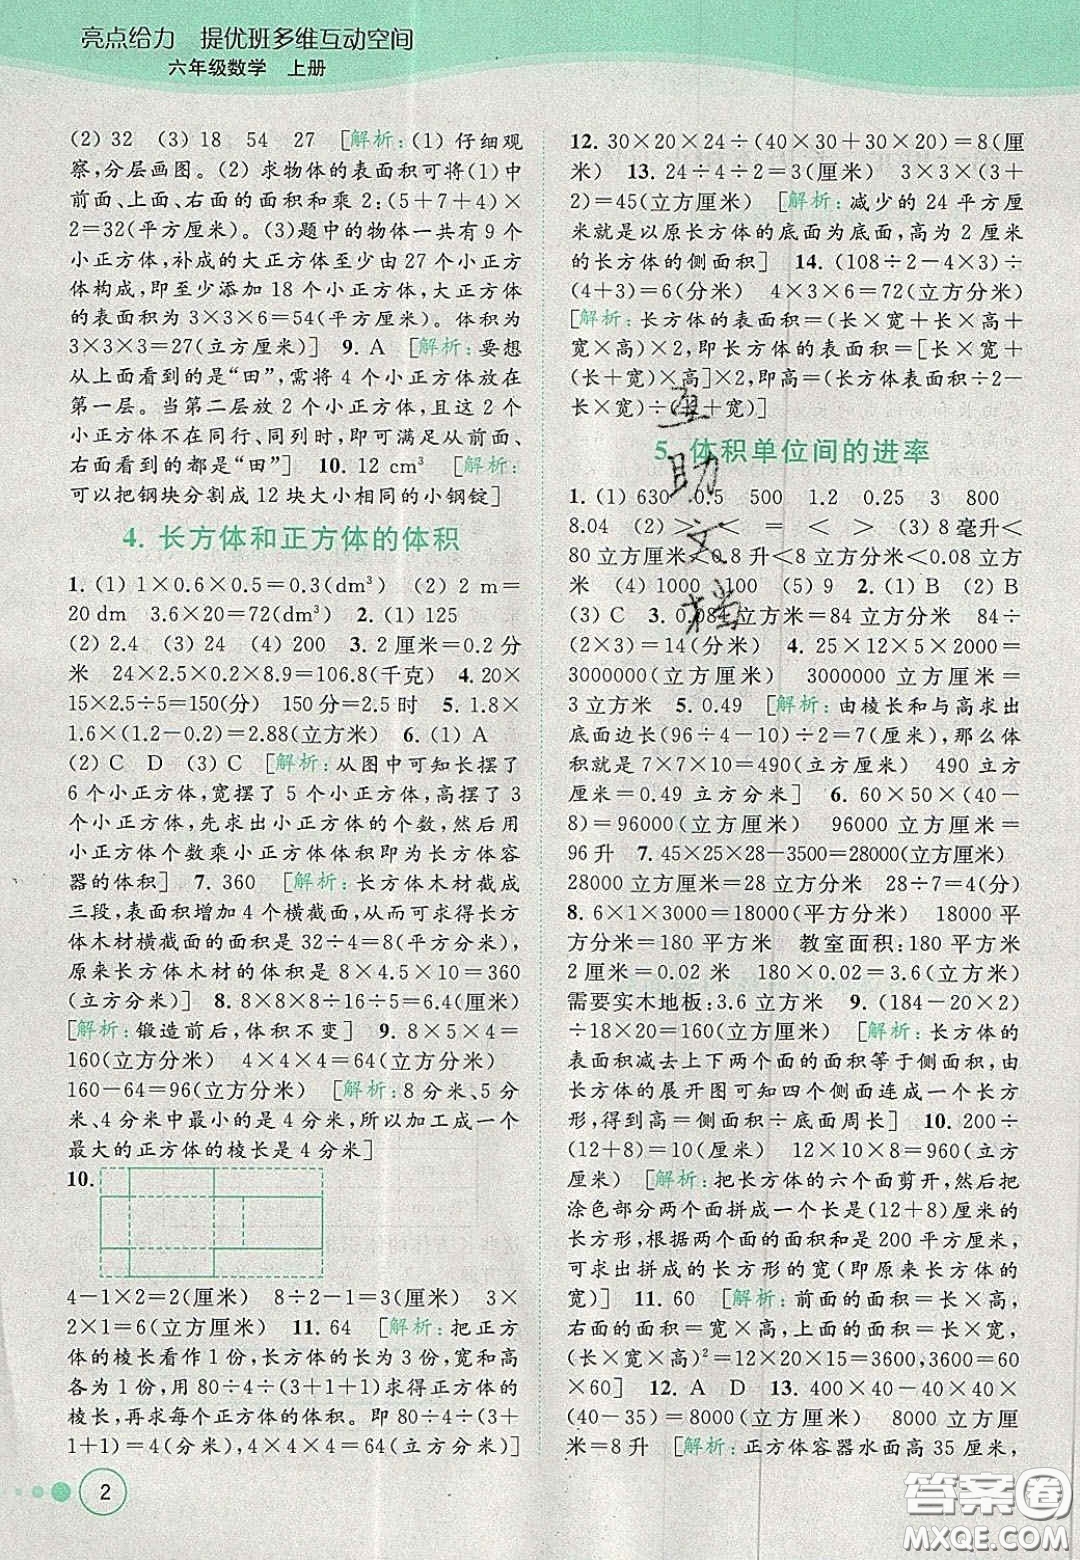 亮点给力 提优班多维互动空间
六年级数学 上册
(2) 32 (3) 18 54 27 [解析:(1) 仔细观
察,分层画图。(2) 求物体的表面积可将(1)中
前面、上面、右面的面积和乘 2:(5+7+4)×
2=32(平方厘米)。(3)题中的物体一共有 9 个
小正方体,补成的大正方体至少由 27 个小正方
体构成,即至少添加 18 个小正方体,大正方体
的表面积为 3×3×6=54(平方厘米)。体积为
3×3×3=27(立方厘米)] 9. A [解析:要想
从上面看到的是“田”,需将 4 个小正方体放在
第一层。当第二层放 2 个小正方体,且这 2 个
小正方体不在同行、同列时,即可满足从前面、
右面看到的都是“田”] 10. 12 cm³ [解析:可
以把钢块分割成 12 块大小相同的小钢锭]
4. 长方体和正方体的体积
1. (1) 1×0.6×0.5=0.3(dm³) (2) 2 m=
20 dm 3.6×20=72(dm³) 2. (1) 125
(2) 2.4 (3) 24 (4) 200 3. 2 厘米=0.2 分
米 24×2.5×0.2×8.9=106.8(千克) 4. 20×
15×2.5÷5=150(分) 150分=2.5 时 5. 1.8×
1.6×(1.2-0.2)=2.88(立方米) 6. (1) A
(2) C D (3) C [解析:从图中可知长摆了
6 个小正方体,宽摆了 5 个小正方体,高摆了 3
个小正方体,先求出小正方体的个数,然后用
小正方体个数乘小正方体体积即为长方体容
器的体积] 7. 360 [解析:长方体木材截成
三段,表面积增加 4 个横截面,可以求得长方
体木材横截面的面积是 32÷4=8(平方分米),
原来长方体木材的体积是 8×4.5×10=360
(立方分米)] 8. 8×8×8÷16÷5=6.4(厘米)
[解析:锻造前后,体积不变] 9. 8×5×4=
160(立方分米) 4×4×4=64(立方分米)
160-64=96(立方分米) [解析:8 分米、5 分
米、4 分米中最小的是 4 分米,所以加工成一个
最大的正方体的棱长是 4 分米]
10.
4-1×2=2(厘米) 8÷2-1=3(厘米) 3×
2×1=6(立方厘米) 11. 64 [解析:把正方
体的棱长看作 1 份,长方体的长为 3 份,宽和高
各为 1 份,用 80÷4÷(3+1+1)求得正方体的
棱长,再求每个正方体的体积。即 80÷4÷(3+
1+1)=4(分米),4×4×4=64(立方分米)]
2
12. 30×20×24÷(40×30+30×20)=8(厘
米) 13. 24÷4÷2=3(厘米) 3×3×(3+
2)=45(立方厘米) [解析:减少的 24 平方厘
米就是以原长方体的底面为底面,高为 2 厘米
的长方体的侧面积] 14. (108÷2-4×3)÷
(4+3)=6(厘米) 4×3×6=72(立方厘米)
[解析:长方体的表面积=(长×宽+长×高+
宽×高)×2,即长方体的表面积=[长×宽+
(长+宽)×高]×2,即高=(长方体表面积÷2-
长×宽)÷(长+宽)]
互助文档
5. 体积单位间的进率
1. (1) 630 0.5 500 1.2 0.25 3 800
8.04 (2) > < = < > (3) 8 毫升<
80 立方厘米<0.8 升<8 立方分米<0.08 立方
米 (4) 1000 100 (5) 9 2. (1) B (2) B
(3) C 3. 0.084 立方米=84 立方分米 84÷
(2×3)=14(分米) 4. 25×12×5×2000=
3000000(立方厘米) 3000000 立方厘米=
3 立方米 5. 0.49 [解析:由棱长和与高求出
底面边长(96÷4-10)÷2=7(厘米),那么体
积就是 7×7×10=490(立方厘米) 490 立方
厘米=0.49 立方分米] 6. 60×50×(40-
8)=96000(立方厘米) 96000 立方厘米=
96升 7. 45×25×28-3500=28000(立方厘米)
28000 立方厘米=28 立方分米 28÷7=4(分)
8. 6×1×3000=18000(平方分米) 18000 平
方分米=180 平方米 教室面积:180 平方米
2 厘米=0.02 米 180×0.02=3.6(立方米)
需要实木地板:3.6 立方米 9. (184-20×2)
÷18×20=160(立方厘米) [解析:长方体的
表面积减去上下两个面的面积等于侧面积,由
长方体的展开图可知四个侧面连成一个长方
形,得到高=侧面积÷底面周长] 10. 200÷
(12+8)=10(厘米) 12×10×8=960(立方
厘米) [解析:把长方体的六个面剪开,然后把
涂色部分两个面拼成一个长是(12+8)厘米的
长方形,根据两个面的面积和是 200 平方厘米,
可求出拼成的长方形的宽(即原来长方体的
宽)] 11. 60 [解析:前面的面积=长×高,
右面的面积=宽×高,上面的面积=长×宽,
(长×宽×高)²=12×15×20=3600,3600=60
×60] 12. A D 13. 400×40-40×40×
(40-35)=8000(立方分米) 8000 立方分
米=8 立方米 [解析:正方体容器水面高 35 厘米,
答案圈
MXQE.COM